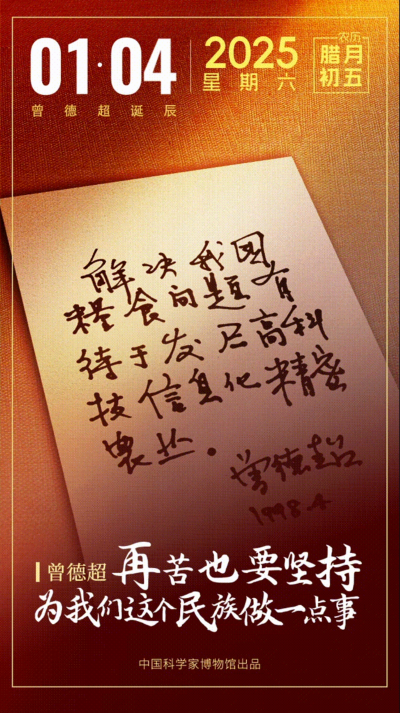 01·04
曾德超诞辰
2025
星期六
农历
腊月
初五
解决我国
粮食问题有
待于发展高科
技信息化精密
农业。
曾德超
1998.4
曾德超 再苦也要坚持
为我们这个民族做一点事
中国科学家博物馆出品